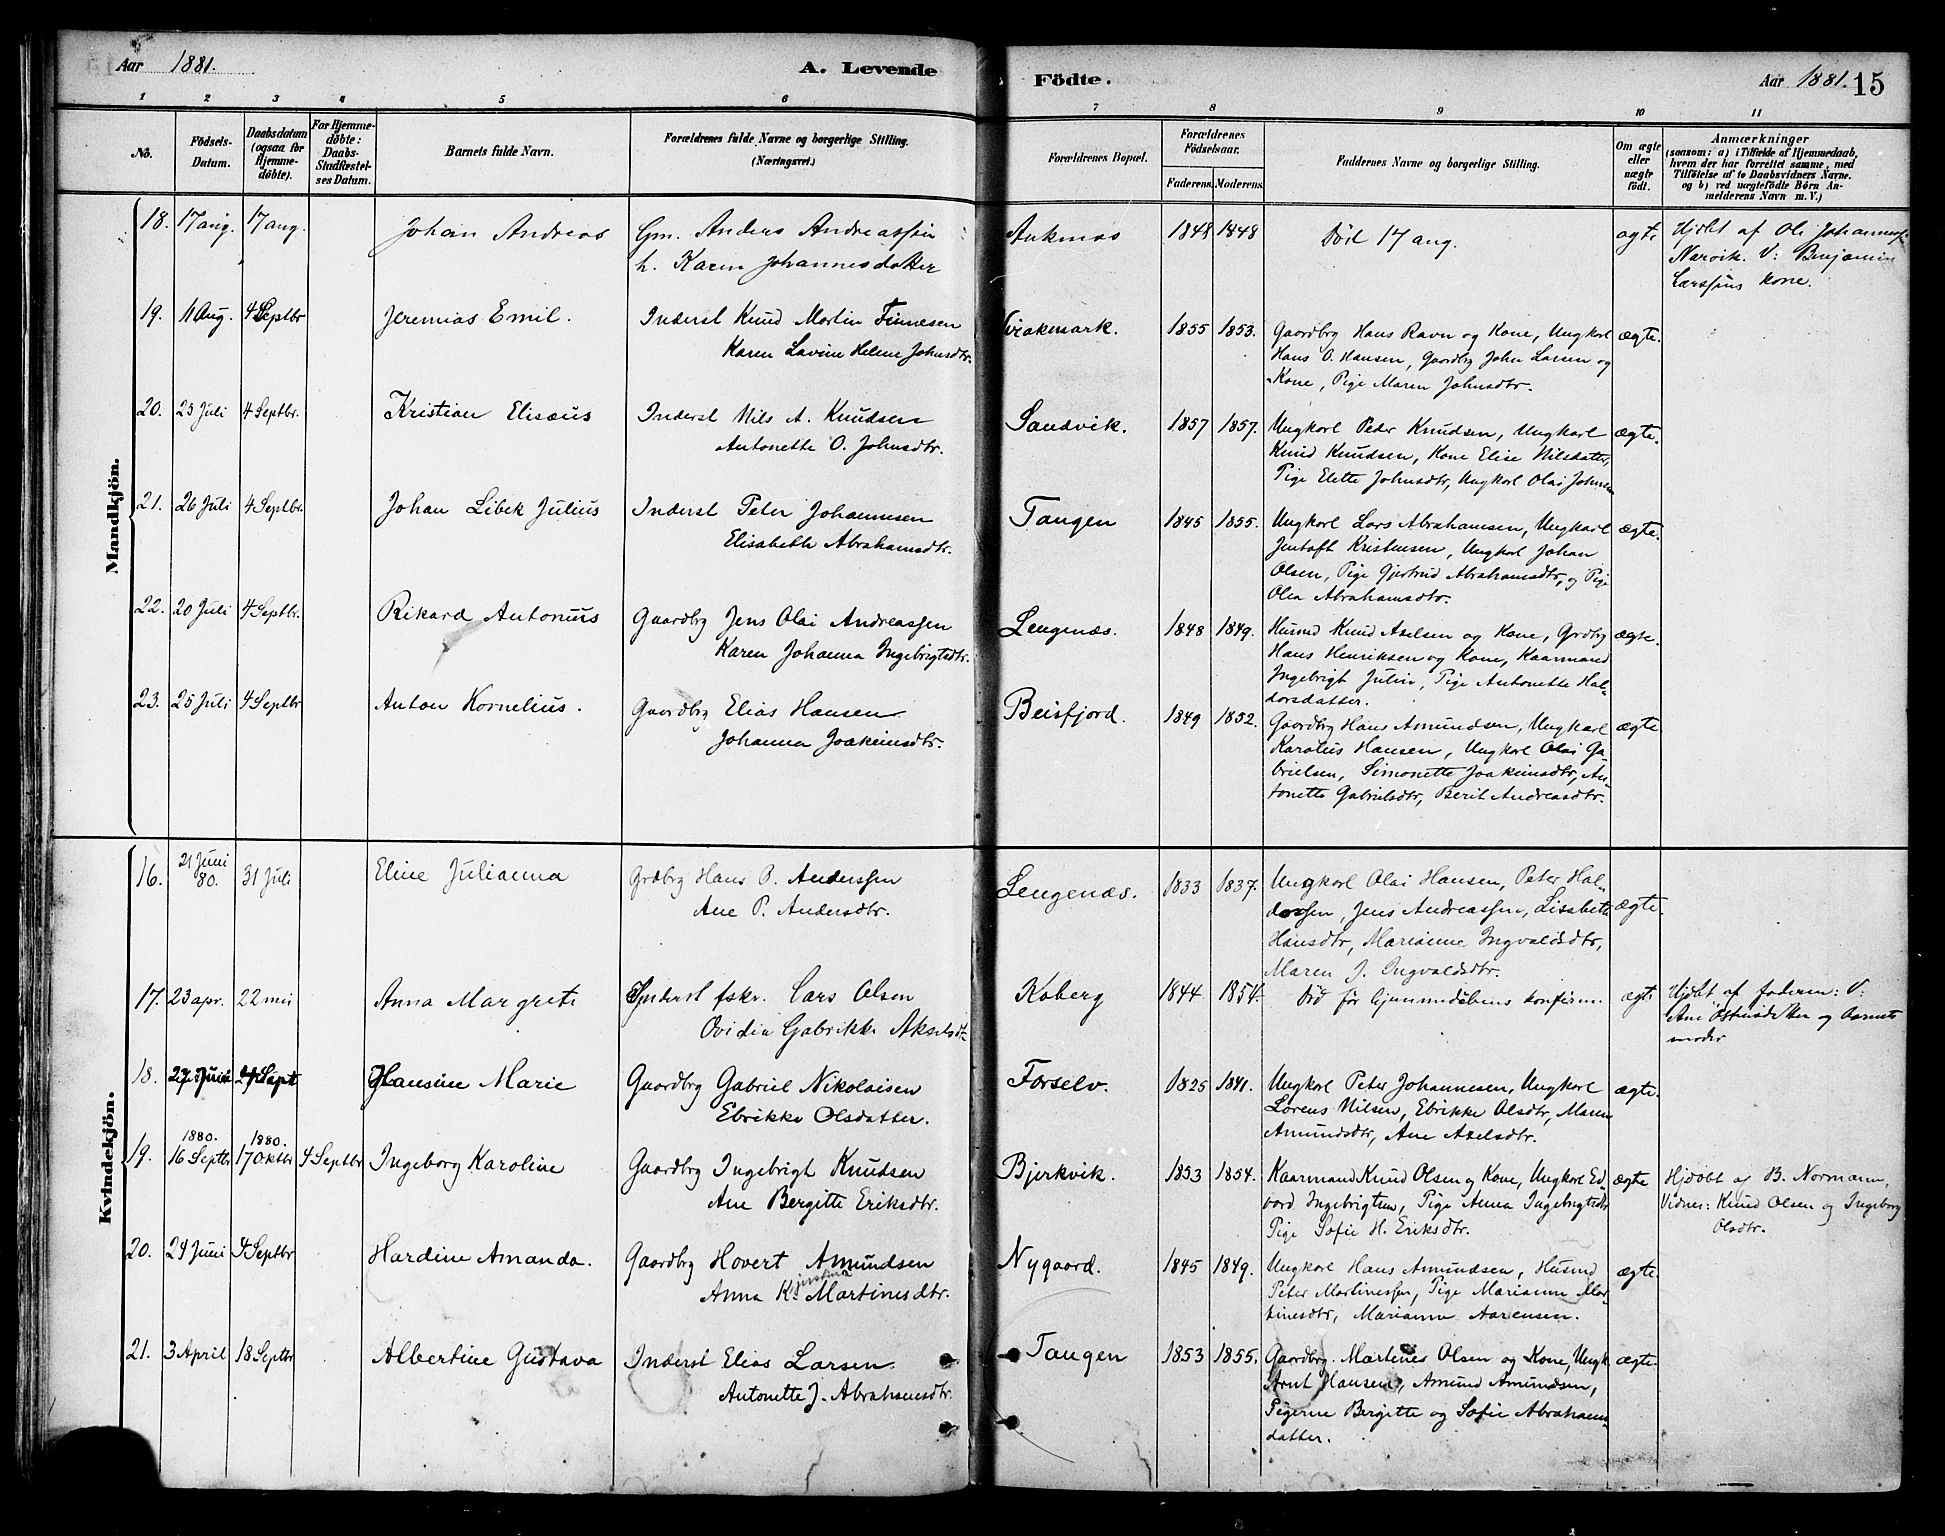 Aar 1881.
A. Levende Födte.
Aar 1881. 15
1 2 3 4 5 6 7 8 9 10 11
No.
Födsels-
Datum.
Daabsdatum
(ogsaa for
Hjemme-
döbte).
For Hjemme-
döbte:
Daabs-
Stadfæstel-
ses Datum.
Barnets fulde Navn.
Forældrenes fulde Navne og borgerlige Stilling.
(Næringsvei.)
Forældrenes Bopæl.
Forældrenes
Födselsaar.
Faderens. Moderens.
Faddernes Navne og borgerlige Stilling.
Om ægte
eller
uægte
födt.
Anmærkninger
(saasom: a) i Tilfælde af Hjemmedaab,
hvem der har forrettet samme, med
Tilföielse af to Daabsvidners Navne.
og b) ved uægtefödte Börn An-
melderens Navn m. V.)
Mandkjön.
18. 17 aug. 17 aug. Johan Andreas Gm. Anders Andreassen Ankenas 1848 1848 Död 17 aug. ægte Hjdbt af Ole Johanness.
h. Karen Johannesdatter Narvik. V: Benjamin
Larssens kone.
19. 11 Aug. 4 Septbr Jeremias Emil. Inderst Knud Martin Finnesen Virakmark. 1855 1853. Gaardbrg Hans Ravn og Kone, Ungkarl ægte.
Karen Lavine Helene Johnsdtr. Hans O. Hansen, Gaardbg John Larsen og
Kone, Pige Maren Johnsdtr.
20. 23 Juli 4 Septbr. Kristian Elisæus Inderst Nils A. Knudsen Sandvik. 1857 1857. Ungkarl Peder Knudsen, Ungkarl ægte.
Antonette O. Johnsdtr. Knud Knudsen, Kone Elise Nilsdatter,
Pige Elette Johnsdtr, Ungkarl Olai Johnsen
21. 26 Juli 4 Septbr. Johan Libek Julius Inderst Peter Johannesen Tangen 1845 1855. Ungkarl Lars Abrahamsen, Ungkarl ægte.
Elisabeth Abrahamsdtr. Jentoft Kristensen, Ungkarl Johan
Olsen, Pige Gjertrud Abrahamsdtr, og Pige
Olea Abrahamsdtr.
22. 20 Juli 4 Septbr. Rikard Antonius Gaardbrg Jens Olai Andreassen Lengenæs. 1848 1849. Husmd Knud Axelsen og Kone, Grdbrg ægte.
Karen Johanna Ingebrigtsdtr. Hans Henriksen og Kone, Kaarmand
Ingebrigt Julin, Pige Antonette Hal-
dorsdatter.
23. 25 Juli 4 Septbr Anton Kornelius. Gaardbrg Elias Hansen Beisfjord. 1849 1852. Gaardbg Hans Amundsen, Ungkarl ægte.
Johanna Joakimsdtr. Karolus Hansen, Ungkarl Olai Ga-
brielsen, Simonette Joakimsdtr, An-
tonette Gabrielsdtr, Berit Andreasdtr.
Kvindekjön.
16. 21 Juni 80. 31 Juli Eline Julianna Grdbrg Hans P. Anderssen Lengenæs. 1833 1837. Ungkarl Olai Hansen, Peter Hal-
Ane P. Andersdtr. dorssen, Jens Andreassen, Lisabeth ægte.
Hansdtr, Marianne Ingvaldsdtr,
Maren J. Ingvaldsdtr.
17. 23 apr. 22 mei Anna Margrete Inderst fskr. Lars Olsen Koberg 1844 1854. Död för Hjemmedåbens konfirm. ægte Hjdbt af faderen: V:
Ovidia Gabrikke Akselsdtr Ane Östensdatter og Barnets
moder
18. 27 Juni 4 Sept Hansine Marie Gaardbrg Gabriel Nikolaisen Forselv. 1825 1841. Ungkarl Peter Johannesen, Ungkarl ægte.
Ebrikke Olsdatter. Lorens Nilsen, Ebrikke Olsdtr, Maren
Amundsdtr, Ane Axelsdtr.
19. 1880. 16 Septbr 1880. 17 Oktbr 4 Septbr Ingeborg Karoline Gaardbrg Ingebrigt Knudsen Bjerkvik. 1853 1854. Kaarmand Knud Olsen og Kone, Ungkarl Ed- ægte Hjdöbt af B. Normann,
Ane Bergitte Eriksdtr. vard Ingebrigtsen, Pige Anna Ingebrigtsdtr Vidner: Knud Olsen og Ingeborg
Pige Sofie H. Eriksdtr. Olsdtr.
20. 24 Juni 4 Septbr Hardine Amanda. Gaardbrg Hovert Amundsen Nygaard. 1845 1849. Ungkarl Hans Amundsen, Husmd ægte.
Anna Kjerstina Martinesdtr. Peter Martinessen, Pige Marianne Mar-
tinesdtr, Marianne Aarensen.
21. 3 April 18 Septbr Albertine Gustava Inderst Elias Larsen Tangen 1853 1855. Gaardbrg. Martines Olsen og Kone, Ungk. ægte.
Antonette J. Abrahamsdtr. Arnt Hansen, Amund Amundsen,
Pigerne Bergitte og Sofie Abrahams-
datter.